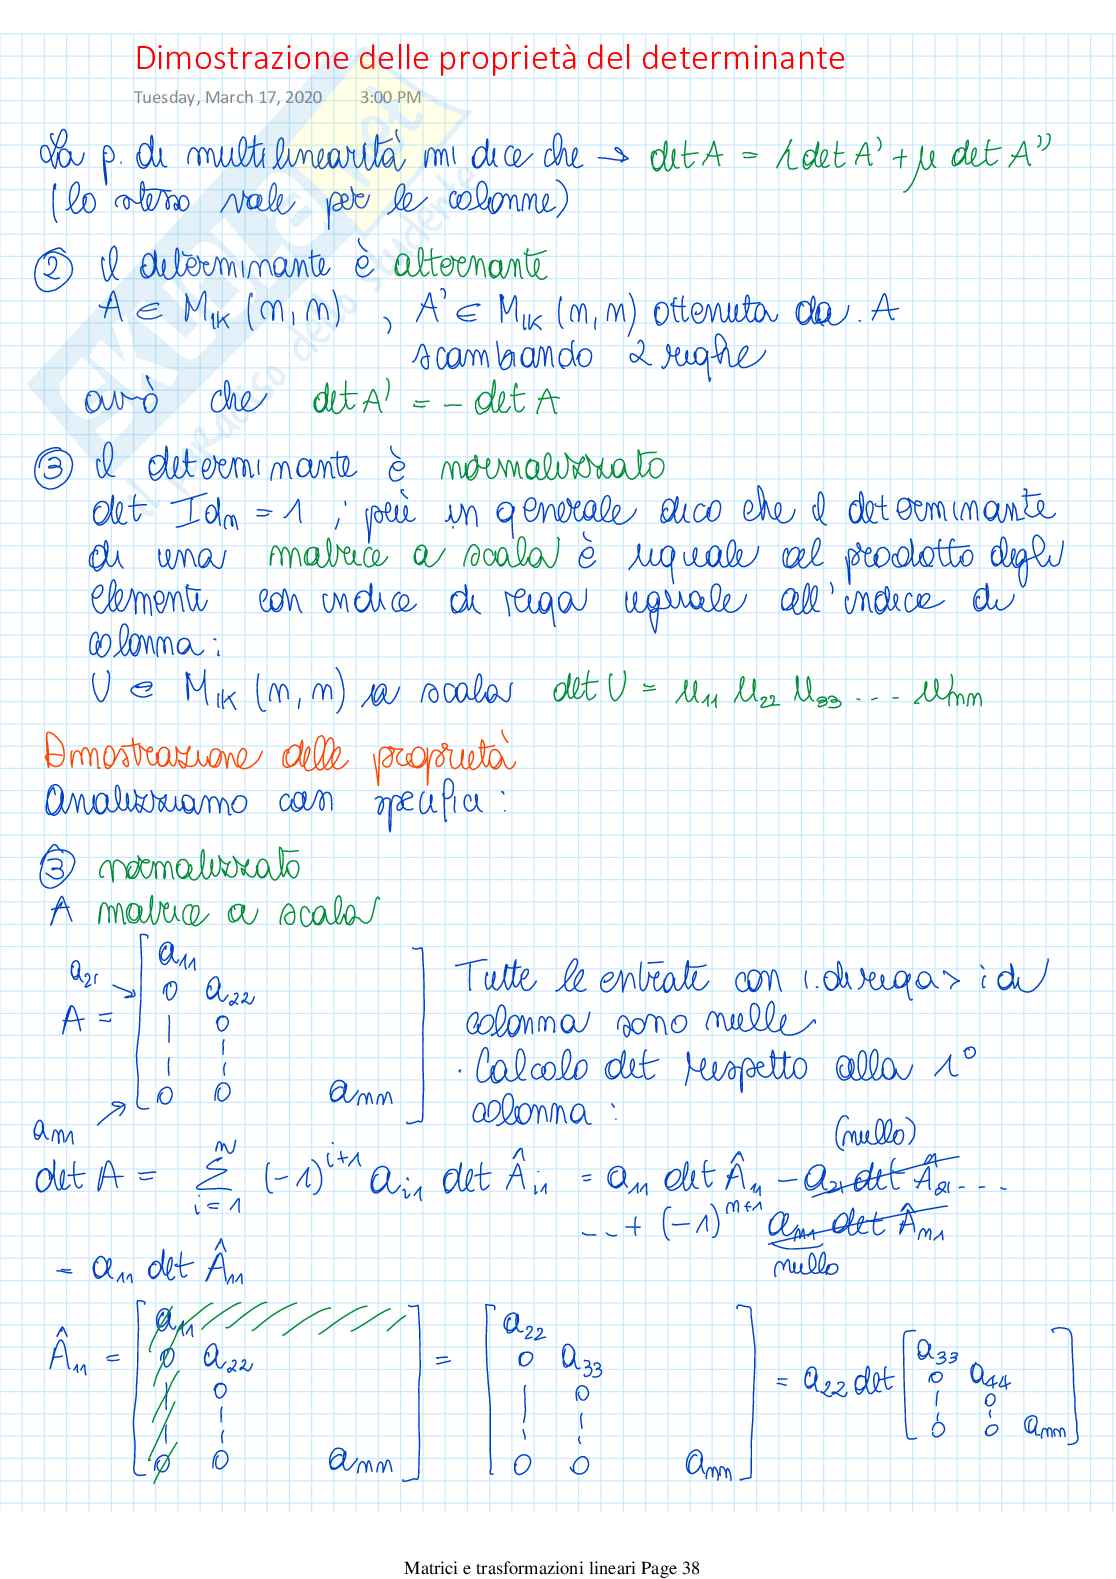 Dimostrazione delle proprietà del determinante
Tuesday, March 17, 2020 3:00 PM
La p. di multilinearità mi dice che → det A = λ det A' + μ det A''
(lo stesso vale per le colonne)
② il determinante è alternante
A ∈ M_IK (n,n) , A' ∈ M_IK (n,n) ottenuta da A
scambiando 2 righe
avrò che det A' = - det A
③ il determinante è normalizzato
det Id_n = 1 ; più in generale dico che il determinante
di una matrice a scala è uguale al prodotto degli
elementi con indice di riga uguale all'indice di
colonna:
U ∈ M_IK (n,n) a scala det U = u_11 u_22 u_33 ... u_nn
Dimostrazione delle proprietà
Analizziamo casi specifici:
③ normalizzato
A matrice a scala
a_21 → A = [ a_11
0 a_22
| 0
| |
0 0 a_nn ]
a_n1
Tutte le entrate con i. di riga > i di
colonna sono nulle
· Calcolo det rispetto alla 1°
colonna:
(nullo)
det A = Σ_{i=1}^{n} (-1)^{i+1} a_i1 det Â_i1 = a_11 det Â_11 - a_21 det Â_21 ...
... + (-1)^{n+1} a_n1 det Â_n1
nullo
= a_11 det Â_11
Â_11 = [ a_11
0 a_22
| 0
| |
0 0 a_nn ] = [ a_22
0 a_33
| 0
| |
0 0 a_nn ] = a_22 det [ a_33
0 a_44
| 0
0 0 a_nn ]
Matrici e trasformazioni lineari Page 38